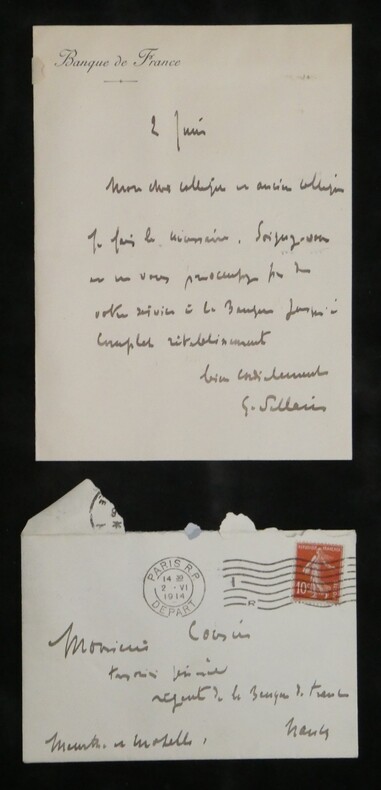 Banque de France
2 Juin
Mon cher collègue et ancien collègue
Je fais le nécessaire. Soignez-vous
et ne vous préoccupez pas de
votre service à la Banque jusqu'à
complet rétablissement
bien cordialement
G.
PARIS R.P.
14
2 - VI
1914
DEPART
10
Monsieur Cousin
trésorier général
régent de la Banque de France
Nancy
Meurthe et Moselle.